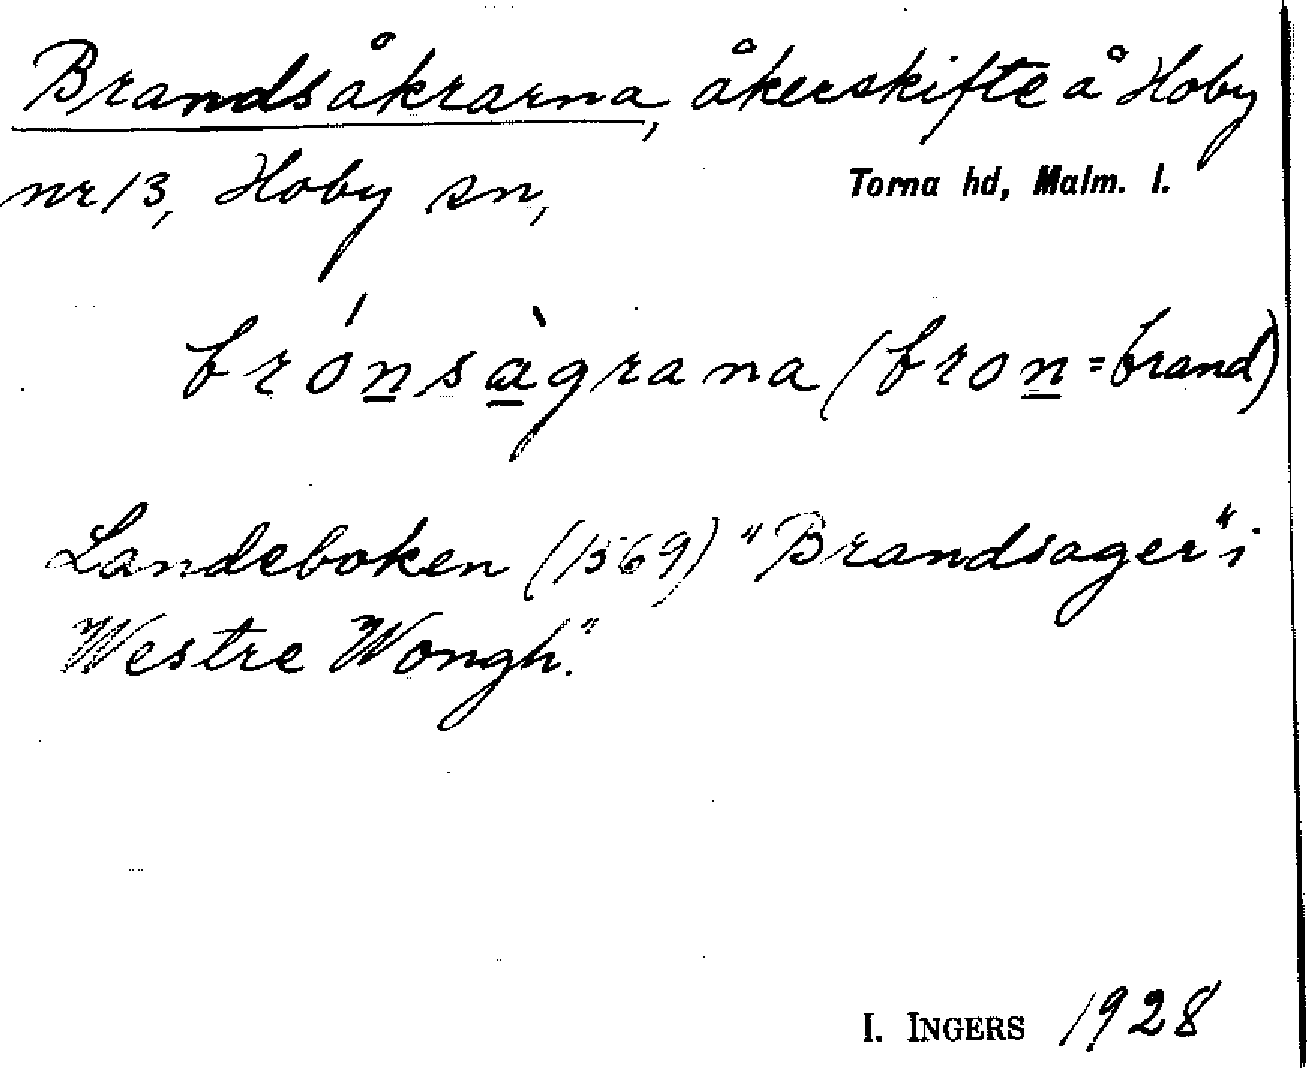 Brandsåkrarna, åkerskifte å Hoby
nr 13, Hoby sn, Torna hd, Malm. l.
brónsàgrana (bron = brand)
Landeboken (1569) "Brandsager" i
Westre Wongh."
I. INGERS 1928